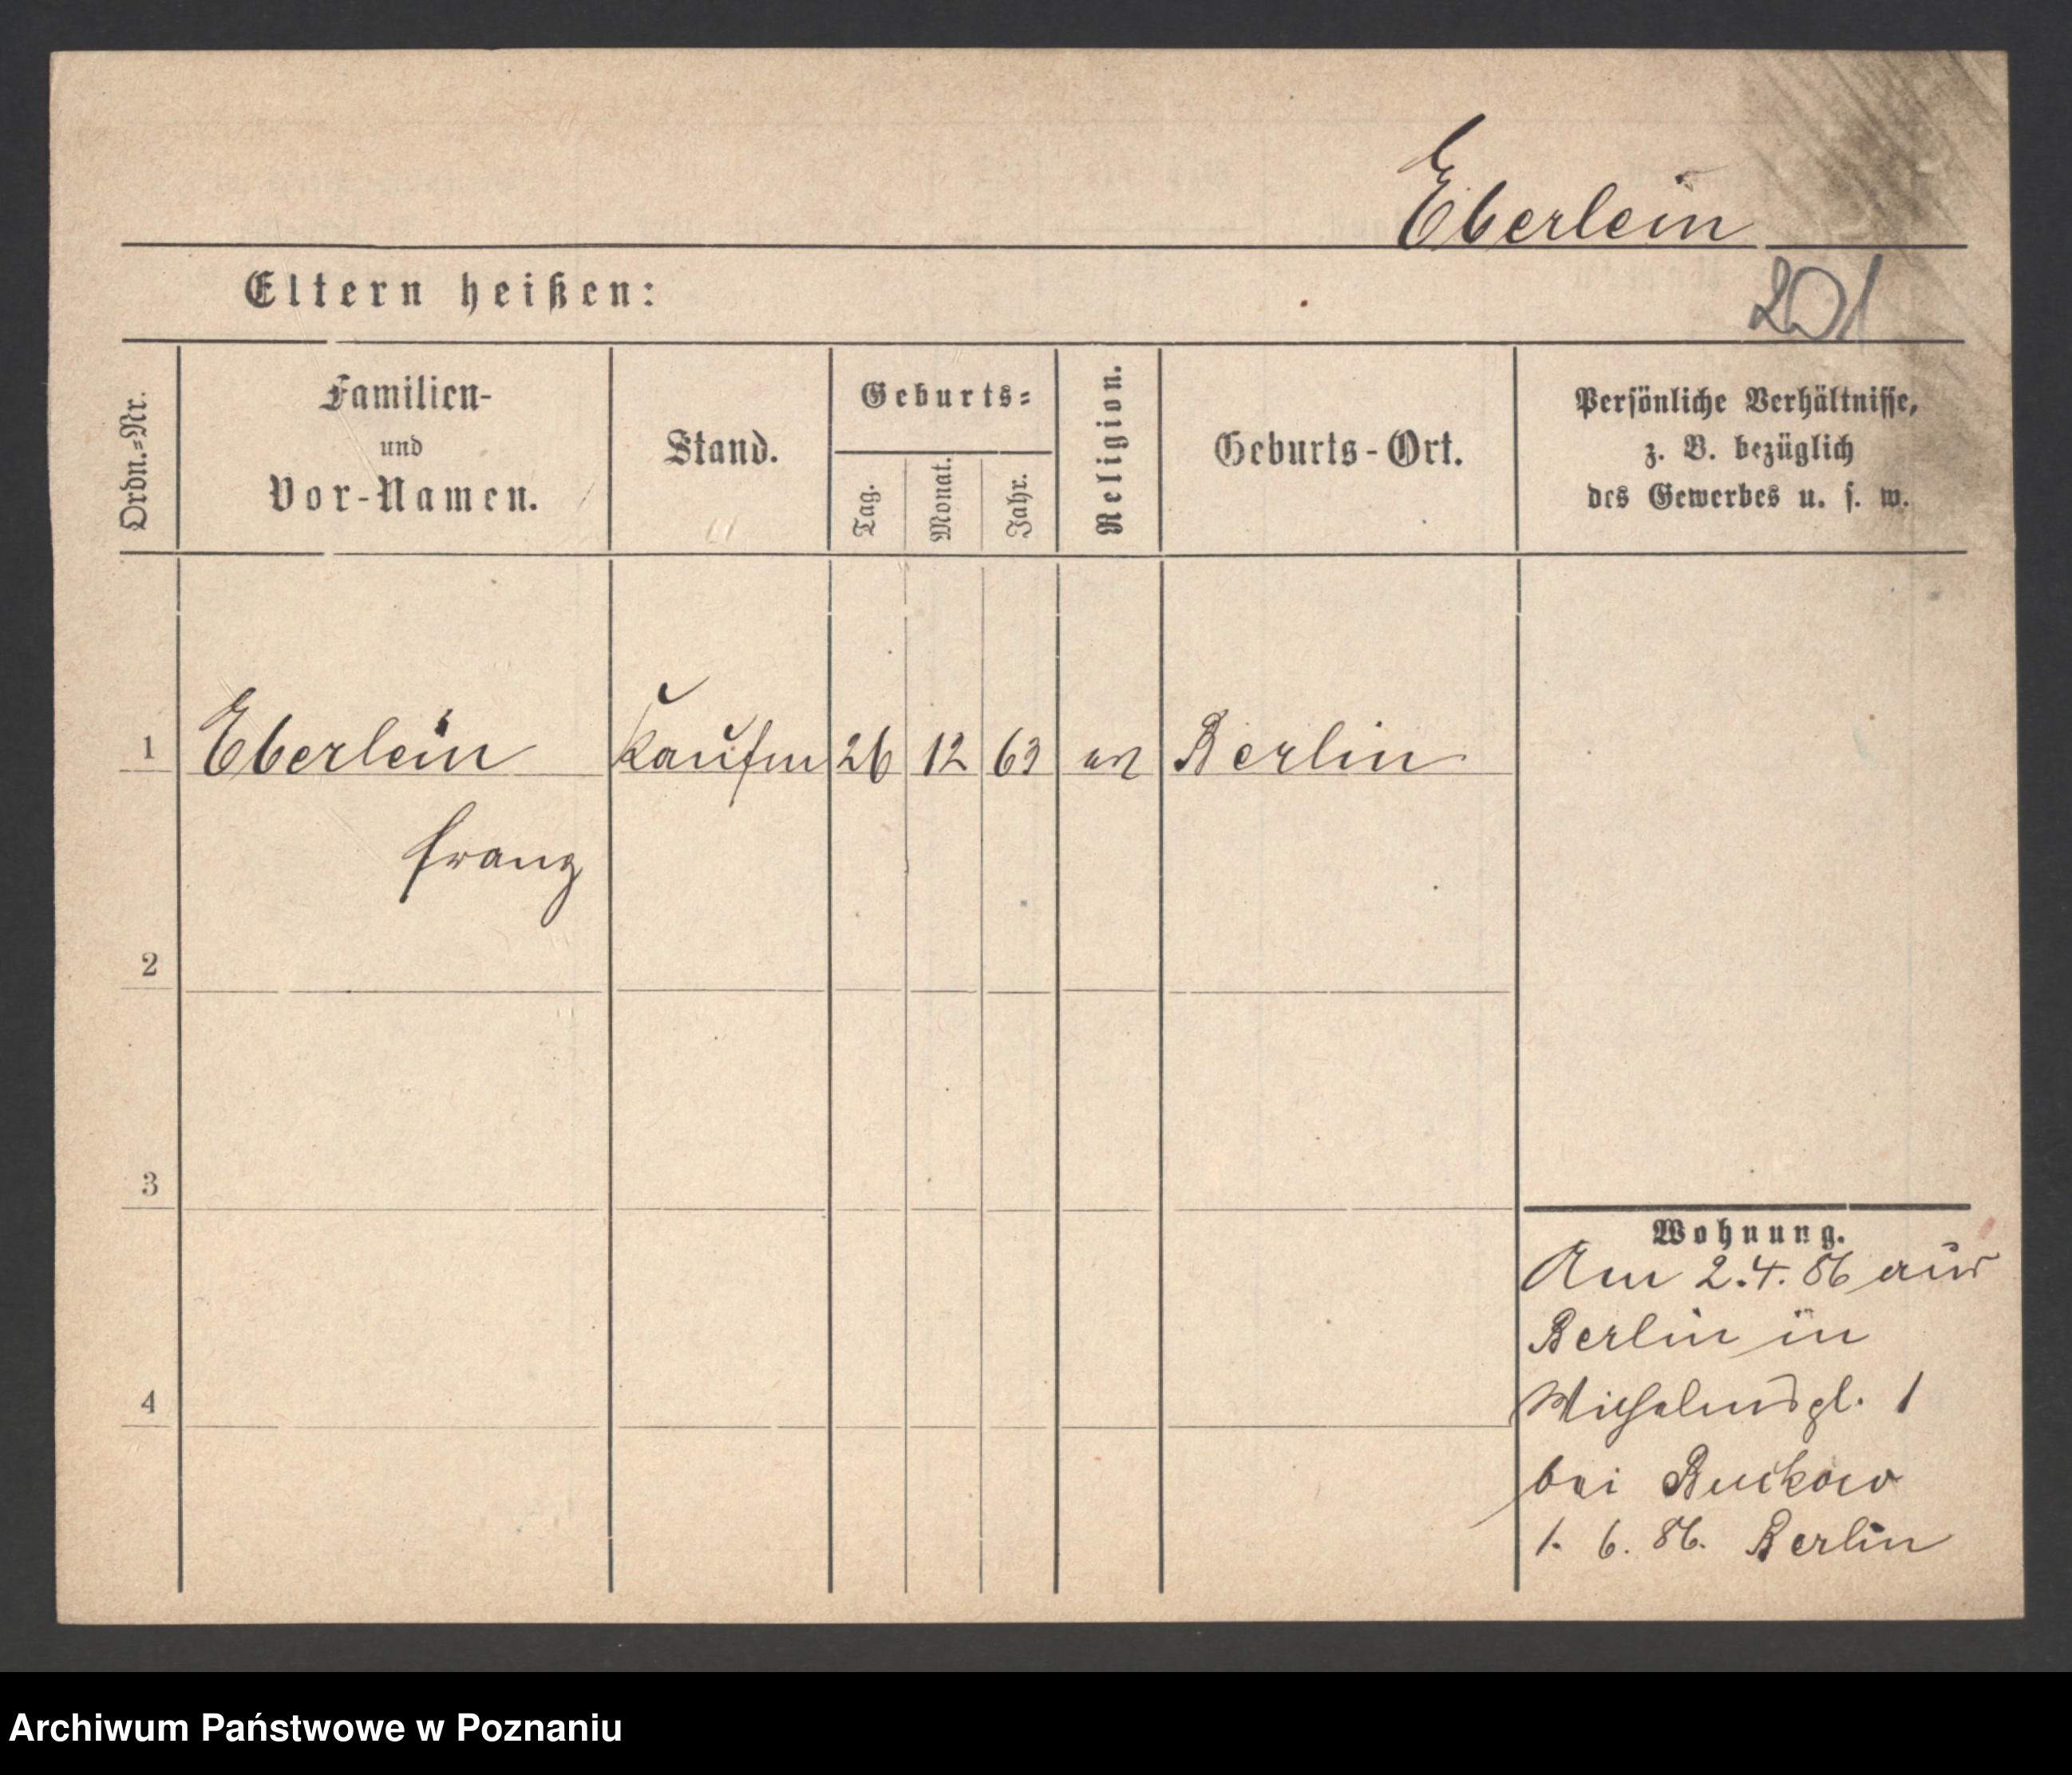 Eberlein
Eltern heißen:
201
Ordn.=Nr.
Familien-
und
Vor-Namen.
Stand.
Geburts=
Tag.
Monat.
Jahr.
Religion.
Geburts-Ort.
Persönliche Verhältnisse,
z. B. bezüglich
des Gewerbes u. s. w.
1 Eberlein Kaufm 26 12 63 ev Berlin
Franz
2
3
4
Wohnung.
Am 2.4.86 aus
Berlin in
Wilhelmspl. 1
bei Buckow
1. 6. 86. Berlin
Archiwum Państwowe w Poznaniu